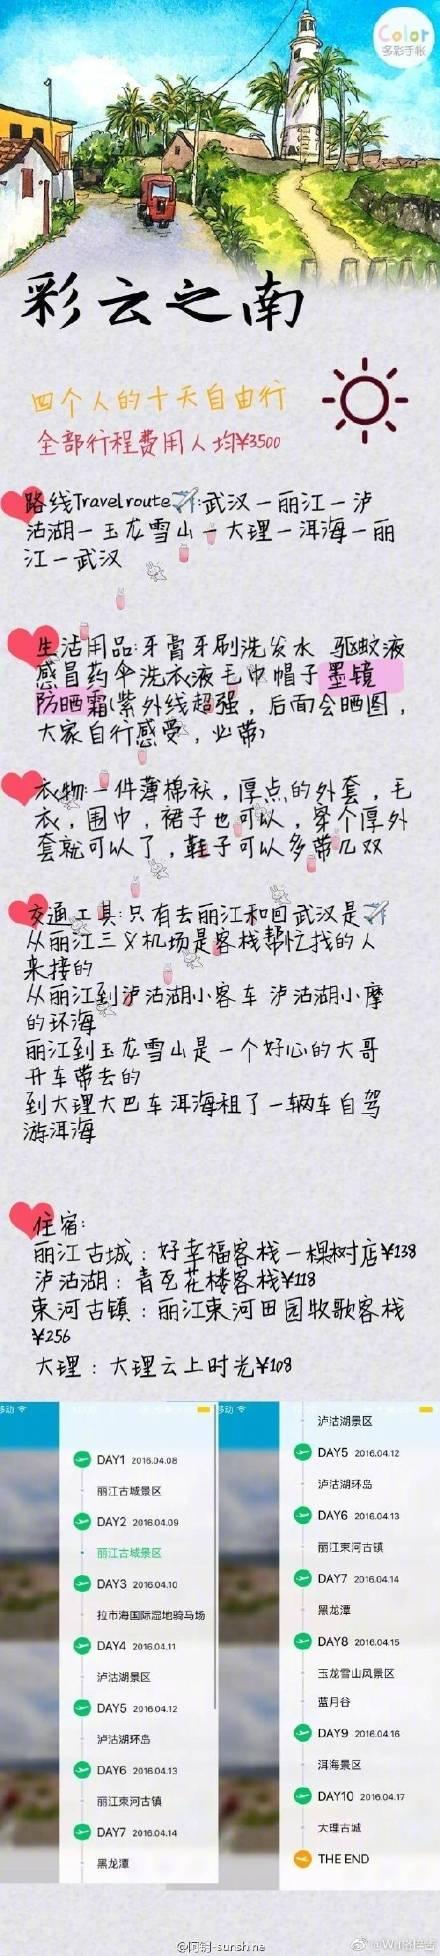 Color
多彩手帐
彩云之南
四个人的十天自由行
全部行程费用人均¥3500
路线Travel route✈️:武汉一丽江一泸
沽湖一玉龙雪山一大理一洱海一丽
江一武汉
生活用品:牙膏牙刷洗发水 驱蚊液
感冒药伞洗衣液毛巾帽子墨镜
防晒霜(紫外线超强，后面会晒图，
大家自行感受，必带)
衣物:一件薄棉袄，厚点的外套，毛
衣，围巾，裙子也可以，穿个厚外
套就可以了，鞋子可以多带几双
交通工具:只有去丽江和回武汉是✈️
从丽江三义机场是客栈帮忙找的人
来接的
从丽江到泸沽湖小客车 泸沽湖小摩
的环海
丽江到玉龙雪山是一个好心的大哥
开车带去的
到大理大巴车洱海租了一辆车自驾
游洱海
住宿:
丽江古城：好幸福客栈一棵树店¥138
泸沽湖：青瓦花楼客栈¥118
束河古镇：丽江束河田园牧歌客栈
¥256
大理：大理云上时光¥108
移动
DAY1 2016.04.08
丽江古城景区
DAY2 2016.04.09
丽江古城景区
DAY3 2016.04.10
拉市海国际湿地骑马场
DAY4 2016.04.11
泸沽湖景区
DAY5 2016.04.12
泸沽湖环岛
DAY6 2016.04.13
丽江束河古镇
DAY7 2016.04.14
黑龙潭
移动
泸沽湖景区
DAY5 2016.04.12
泸沽湖环岛
DAY6 2016.04.13
丽江束河古镇
DAY7 2016.04.14
黑龙潭
DAY8 2016.04.15
玉龙雪山风景区
蓝月谷
DAY9 2016.04.16
洱海景区
DAY10 2016.04.17
大理古城
THE END